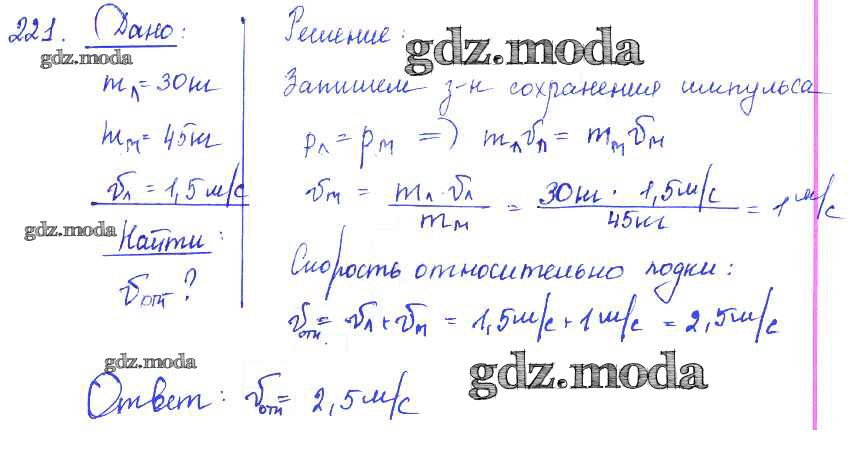 221. Дано:
gdz.moda
mл = 30кг
mм = 45кг
vл = 1,5м/с
gdz.moda
Найти:
vотн?
Решение:
gdz.moda
Запишем з-н сохранения импульса
pл = pм => mлvл = mмvм
vм = mл·vл / mм = 30кг · 1,5м/с / 45кг = 1 м/с
Скорость относительно лодки:
vотн. = vл + vм = 1,5м/с + 1м/с = 2,5м/с
gdz.moda
gdz.moda
Ответ: vотн = 2,5м/с